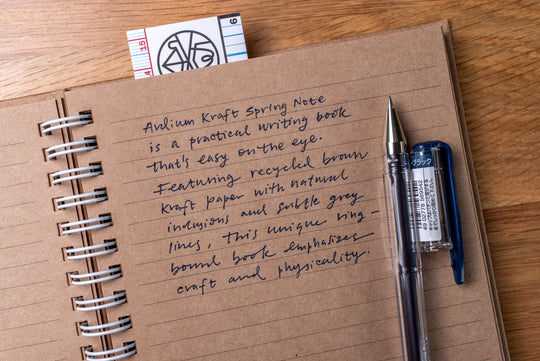 15
6
4
Anlium Kraft Spring Note
is a practical writing book
that's easy on the eye.
Featuring recycled brown
kraft paper with natural
inclusions and subtle grey
lines, this unique ring-
bound book emphasizes
craft and physicality.